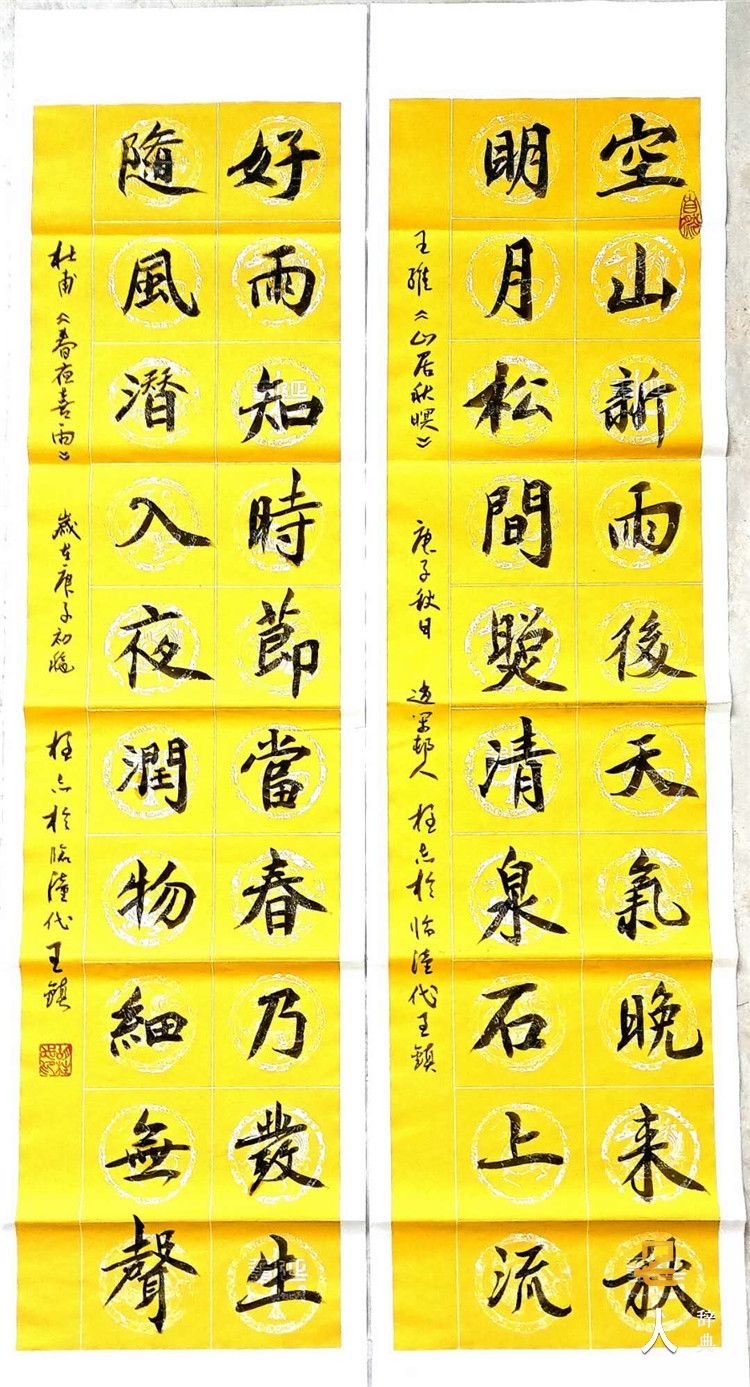 空山新雨後天氣晚来秋
明月松間照清泉石上流
王維《山居秋暝》 庚子秋日 邨人 柱志於临潼代王鎮
好雨知時節當春乃發生
隨風潜入夜潤物細無聲
杜甫《春夜喜雨》 歲在庚子初 柱志於臨潼代王鎮
人
辞典